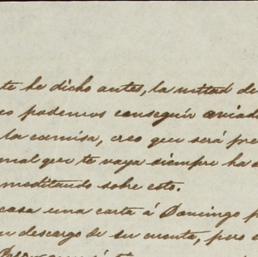 te he dicho antes, la mitad de
podemos conseguir
la camisa, creo que será pre
mal que te vaya siempre ha d
meditando sobre esto.
casa una carta á Domingo p
descargo de su cuenta, pero